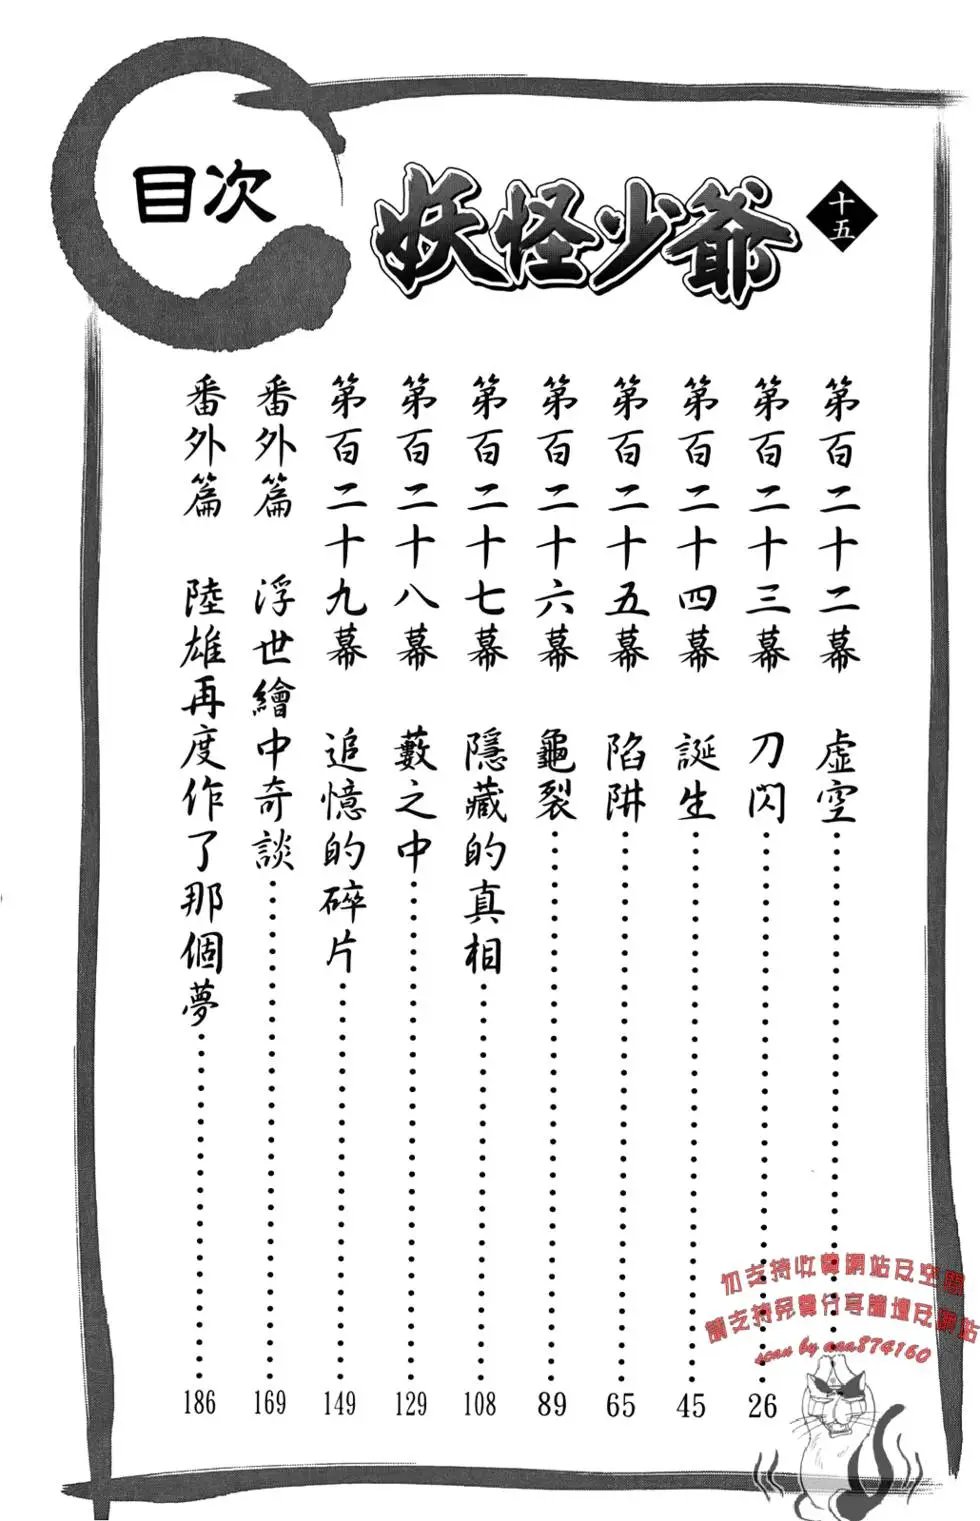 目次
妖怪少爺
十五
第百二十二幕 虛空
第百二十三幕 刀閃 26
第百二十四幕 誕生 45
第百二十五幕 陷阱 65
第百二十六幕 龜裂 89
第百二十七幕 隱藏的真相 108
第百二十八幕 藪之中 129
第百二十九幕 追憶的碎片 149
番外篇 浮世繪中奇談 169
番外篇 陸雄再度作了那個夢 186
勿支持收費網站及空間
請支持免費分享論壇及網站
scan by ana874160